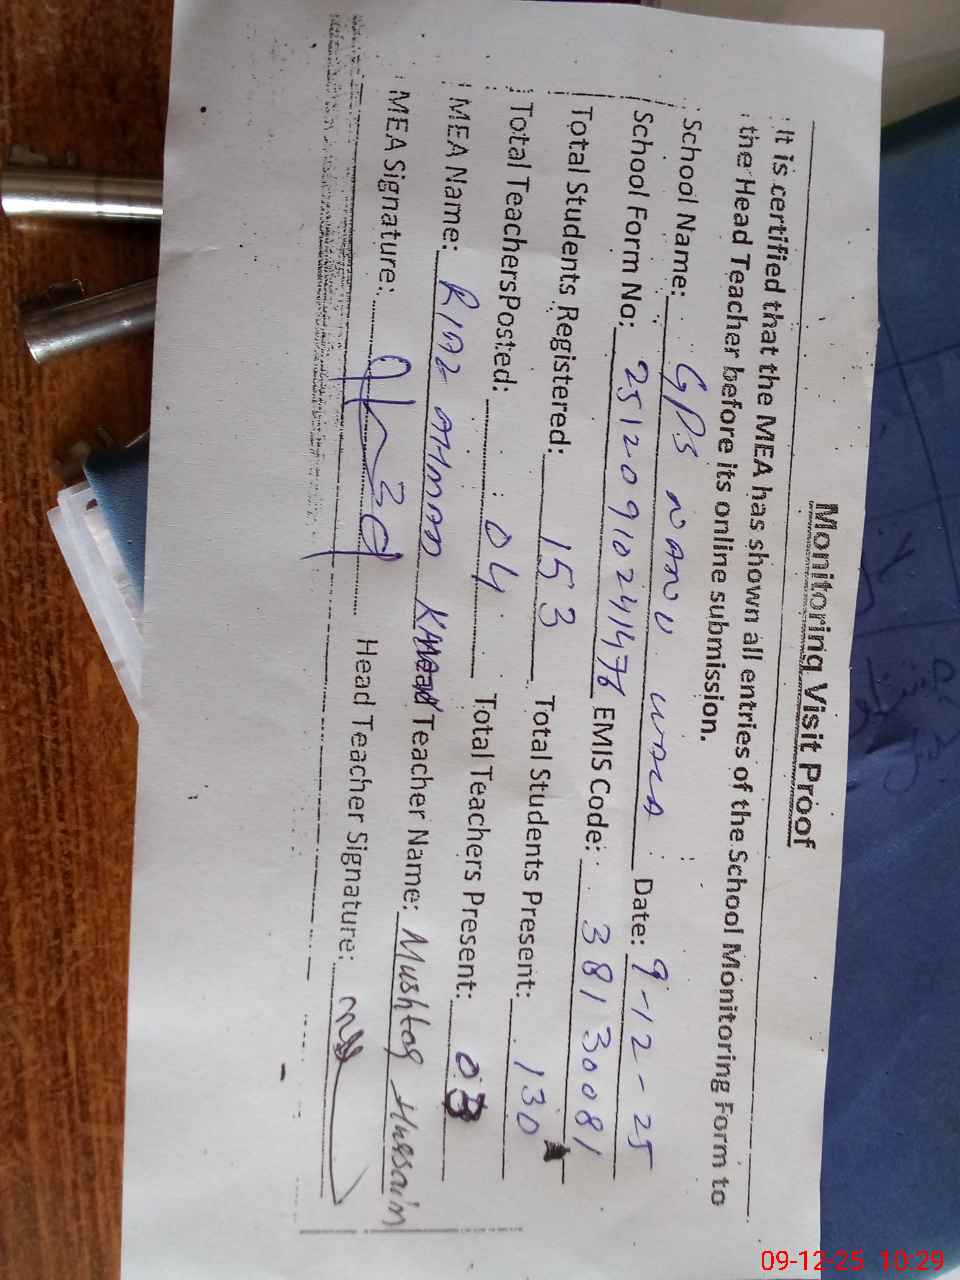 Monitoring Visit Proof
It is certified that the MEA has shown all entries of the School Monitoring Form to
the Head Teacher before its online submission.
School Name: GPS NANU WALA Date: 9-12-25
School Form No: 25120910241476 EMIS Code: 38130081
Total Students Registered: 153 Total Students Present: 130
Total TeachersPosted: 04 Total Teachers Present: 03
MEA Name: RIAZ AHMAD Teacher Name: Mushtaq Hussain
MEA Signature: Head Teacher Signature:
09-12-25 10:29